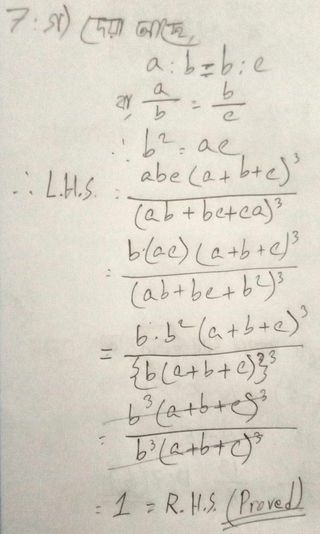 7. গ) দেয়া আছে,
a : b = b : c
বা, a/b = b/c
∴ b² = ac
∴ L.H.S. = abc(a+b+c)³ / (ab+bc+ca)³
= b·(ac)(a+b+c)³ / (ab+bc+b²)³
= b·b²(a+b+c)³ / {b(a+b+c)}³
= b³(a+b+c)³ / b³(a+b+c)³
= 1 = R.H.S. (Proved)